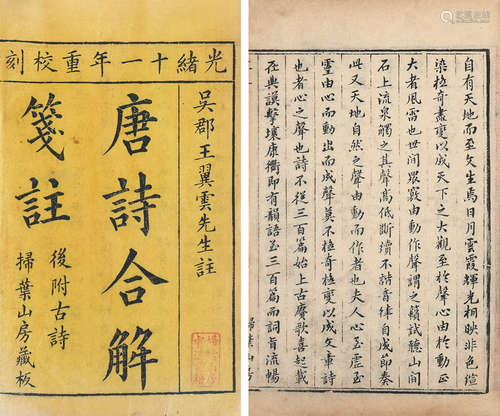 光緒十一年重校刻
吳郡王翼雲先生註
唐詩合解
箋註
後附古詩
掃葉山房藏板
自有天地而至文生焉日月雲霞輝光相映非色瑄
染極奇盡變以成天下之大觀至於聲心由於動而
大者風雷也世間眾竅由動作聲謂之籟試聽山間
石上流泉觸之其聲高低斷續不諧音律自成節奏
此又天地自然之聲由動而作者也夫人心至虛至
靈由心而動出而成聲莫不極奇極變以成文章詩
也者心之聲也詩不從三百篇始上古賡歌喜起載
在典謨擊壤康衢即有韻語至三百篇而詞旨流暢